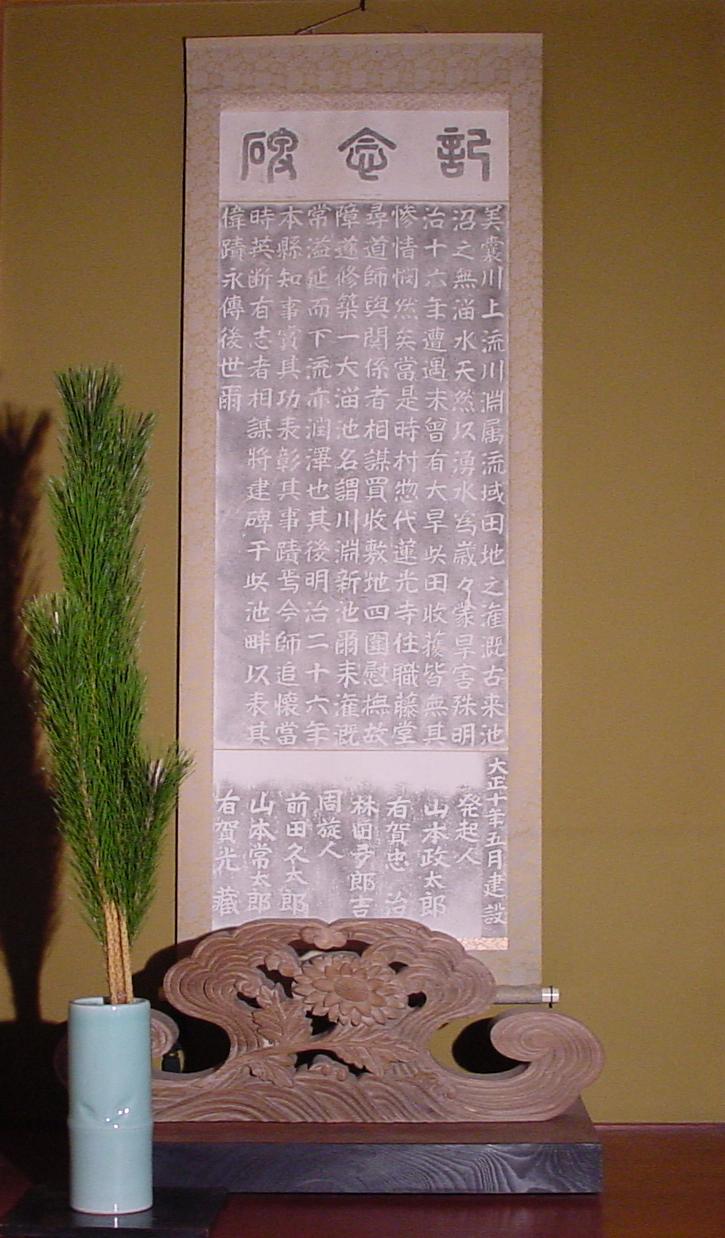 記念碑
美嚢川上流川淵属流域田地之潅漑古来池
沼之無淄水天然以湧水為歳々蒙旱害殊明
治十六年遭遇未曽有大旱此田收穫皆無其
惨情憫然矣當是時村惣代蓮光寺住職藤堂
尋道師與関係者相謀買收敷地四圍慰撫故
障遂修築一大淄池名謂川淵新池爾来潅漑
常溢延而下流亦潤澤也其後明治二十六年
本縣知事賞其功表彰其事蹟焉今師追懐當
時英断有志者相謀將建碑于此池畔以表其
偉蹟永傳後世爾
大正十年五月建設
発起人
山本政太郎
有賀忠治
林田郎吉
周旋人
前田久太郎
山本常太郎
有賀光蔵